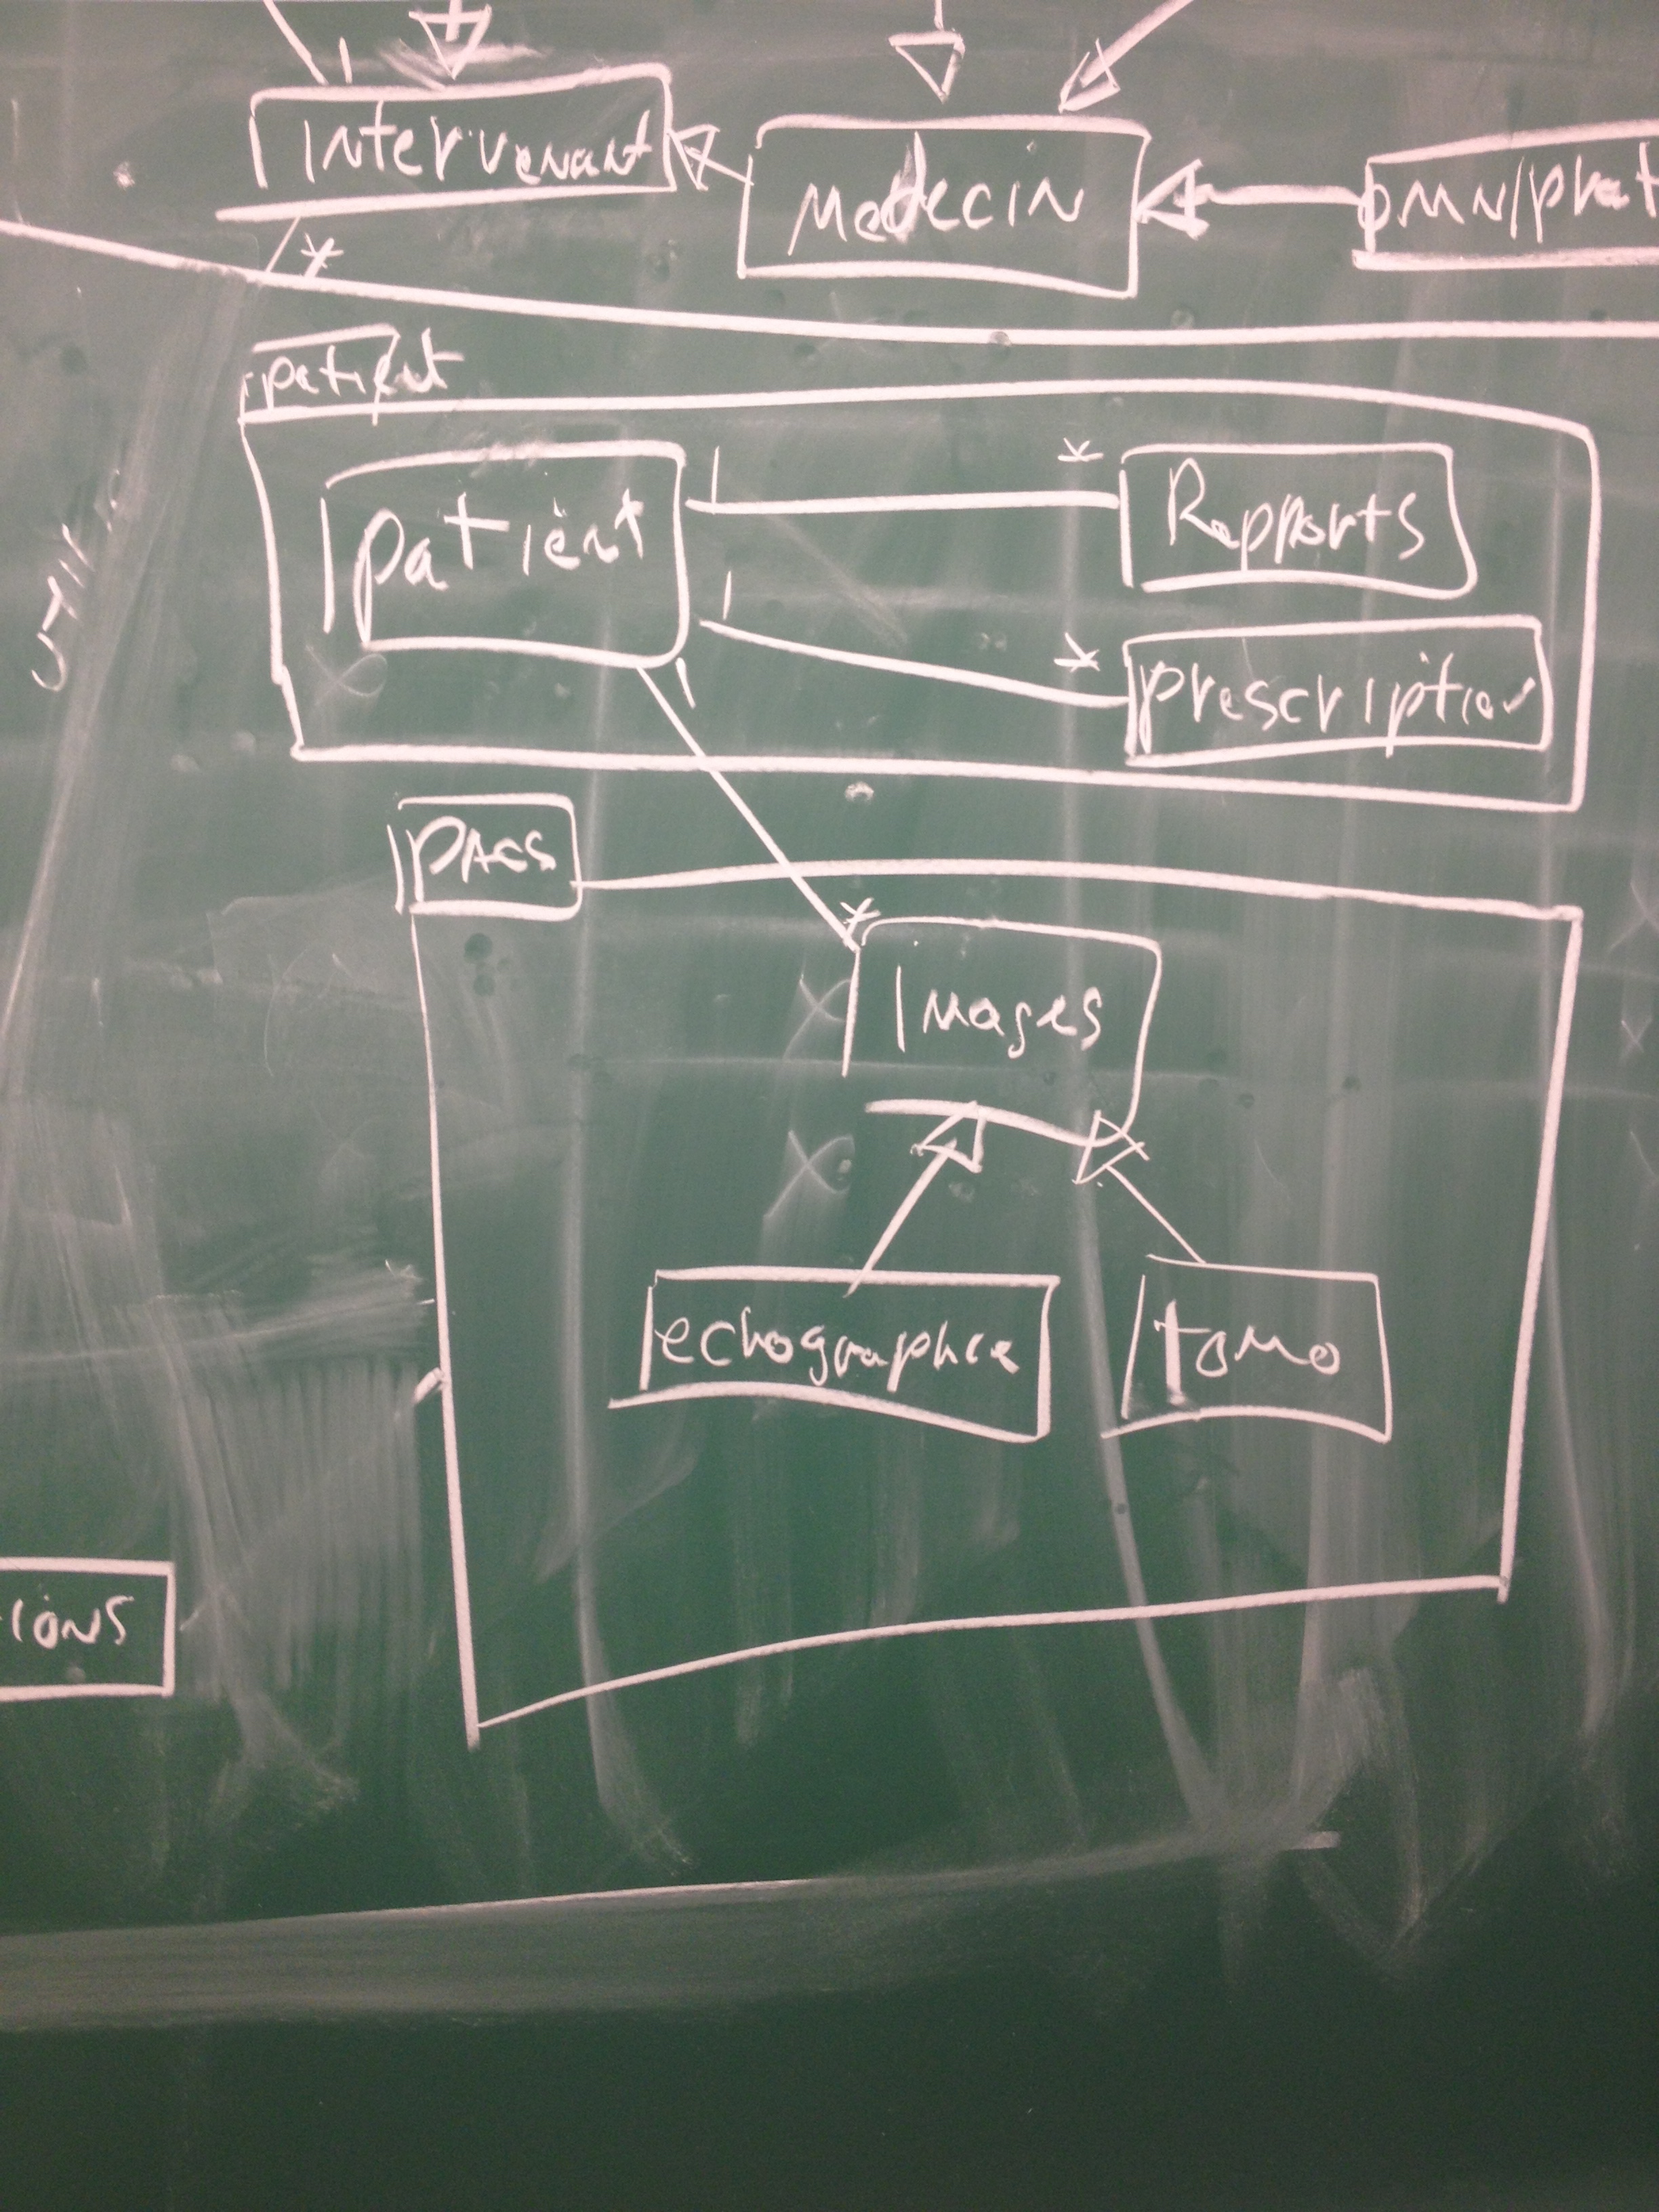 1
Intervenant
Medecin
*
patient
patient
1
*
Rapports
1
*
prescription
1
PACS
*
Images
echographie
tomo
IONS